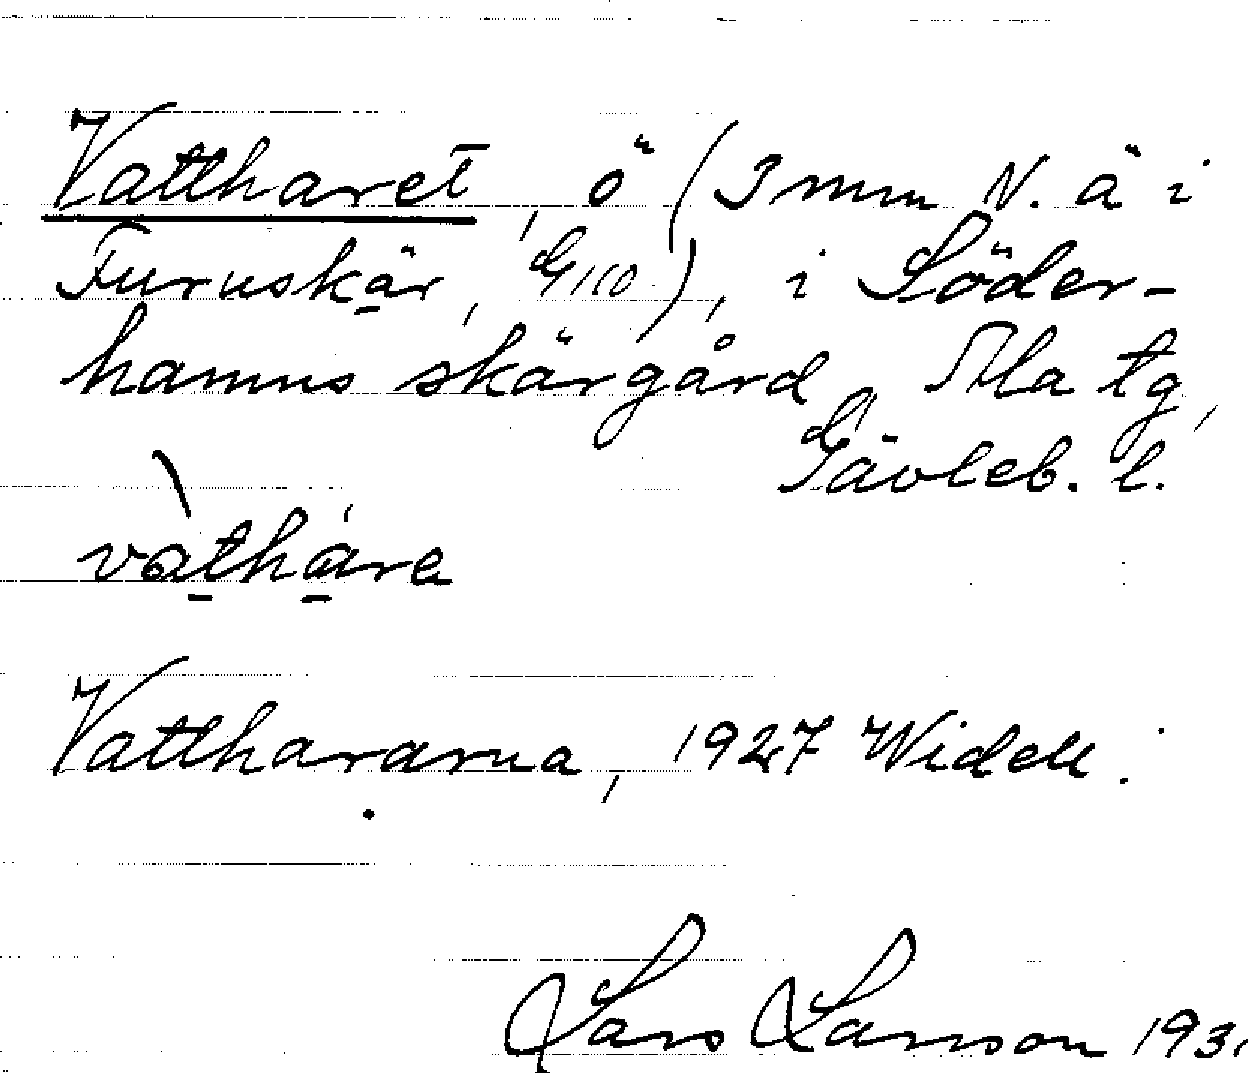 Vattharet, ö (3 mm N. ä i
Furuskär, G110), i Söder-
hamns skärgård, Ala tg,
Gävleb. l.
vàthàra
Vatthararna, 1927 Widell.
Lars Larsson 193